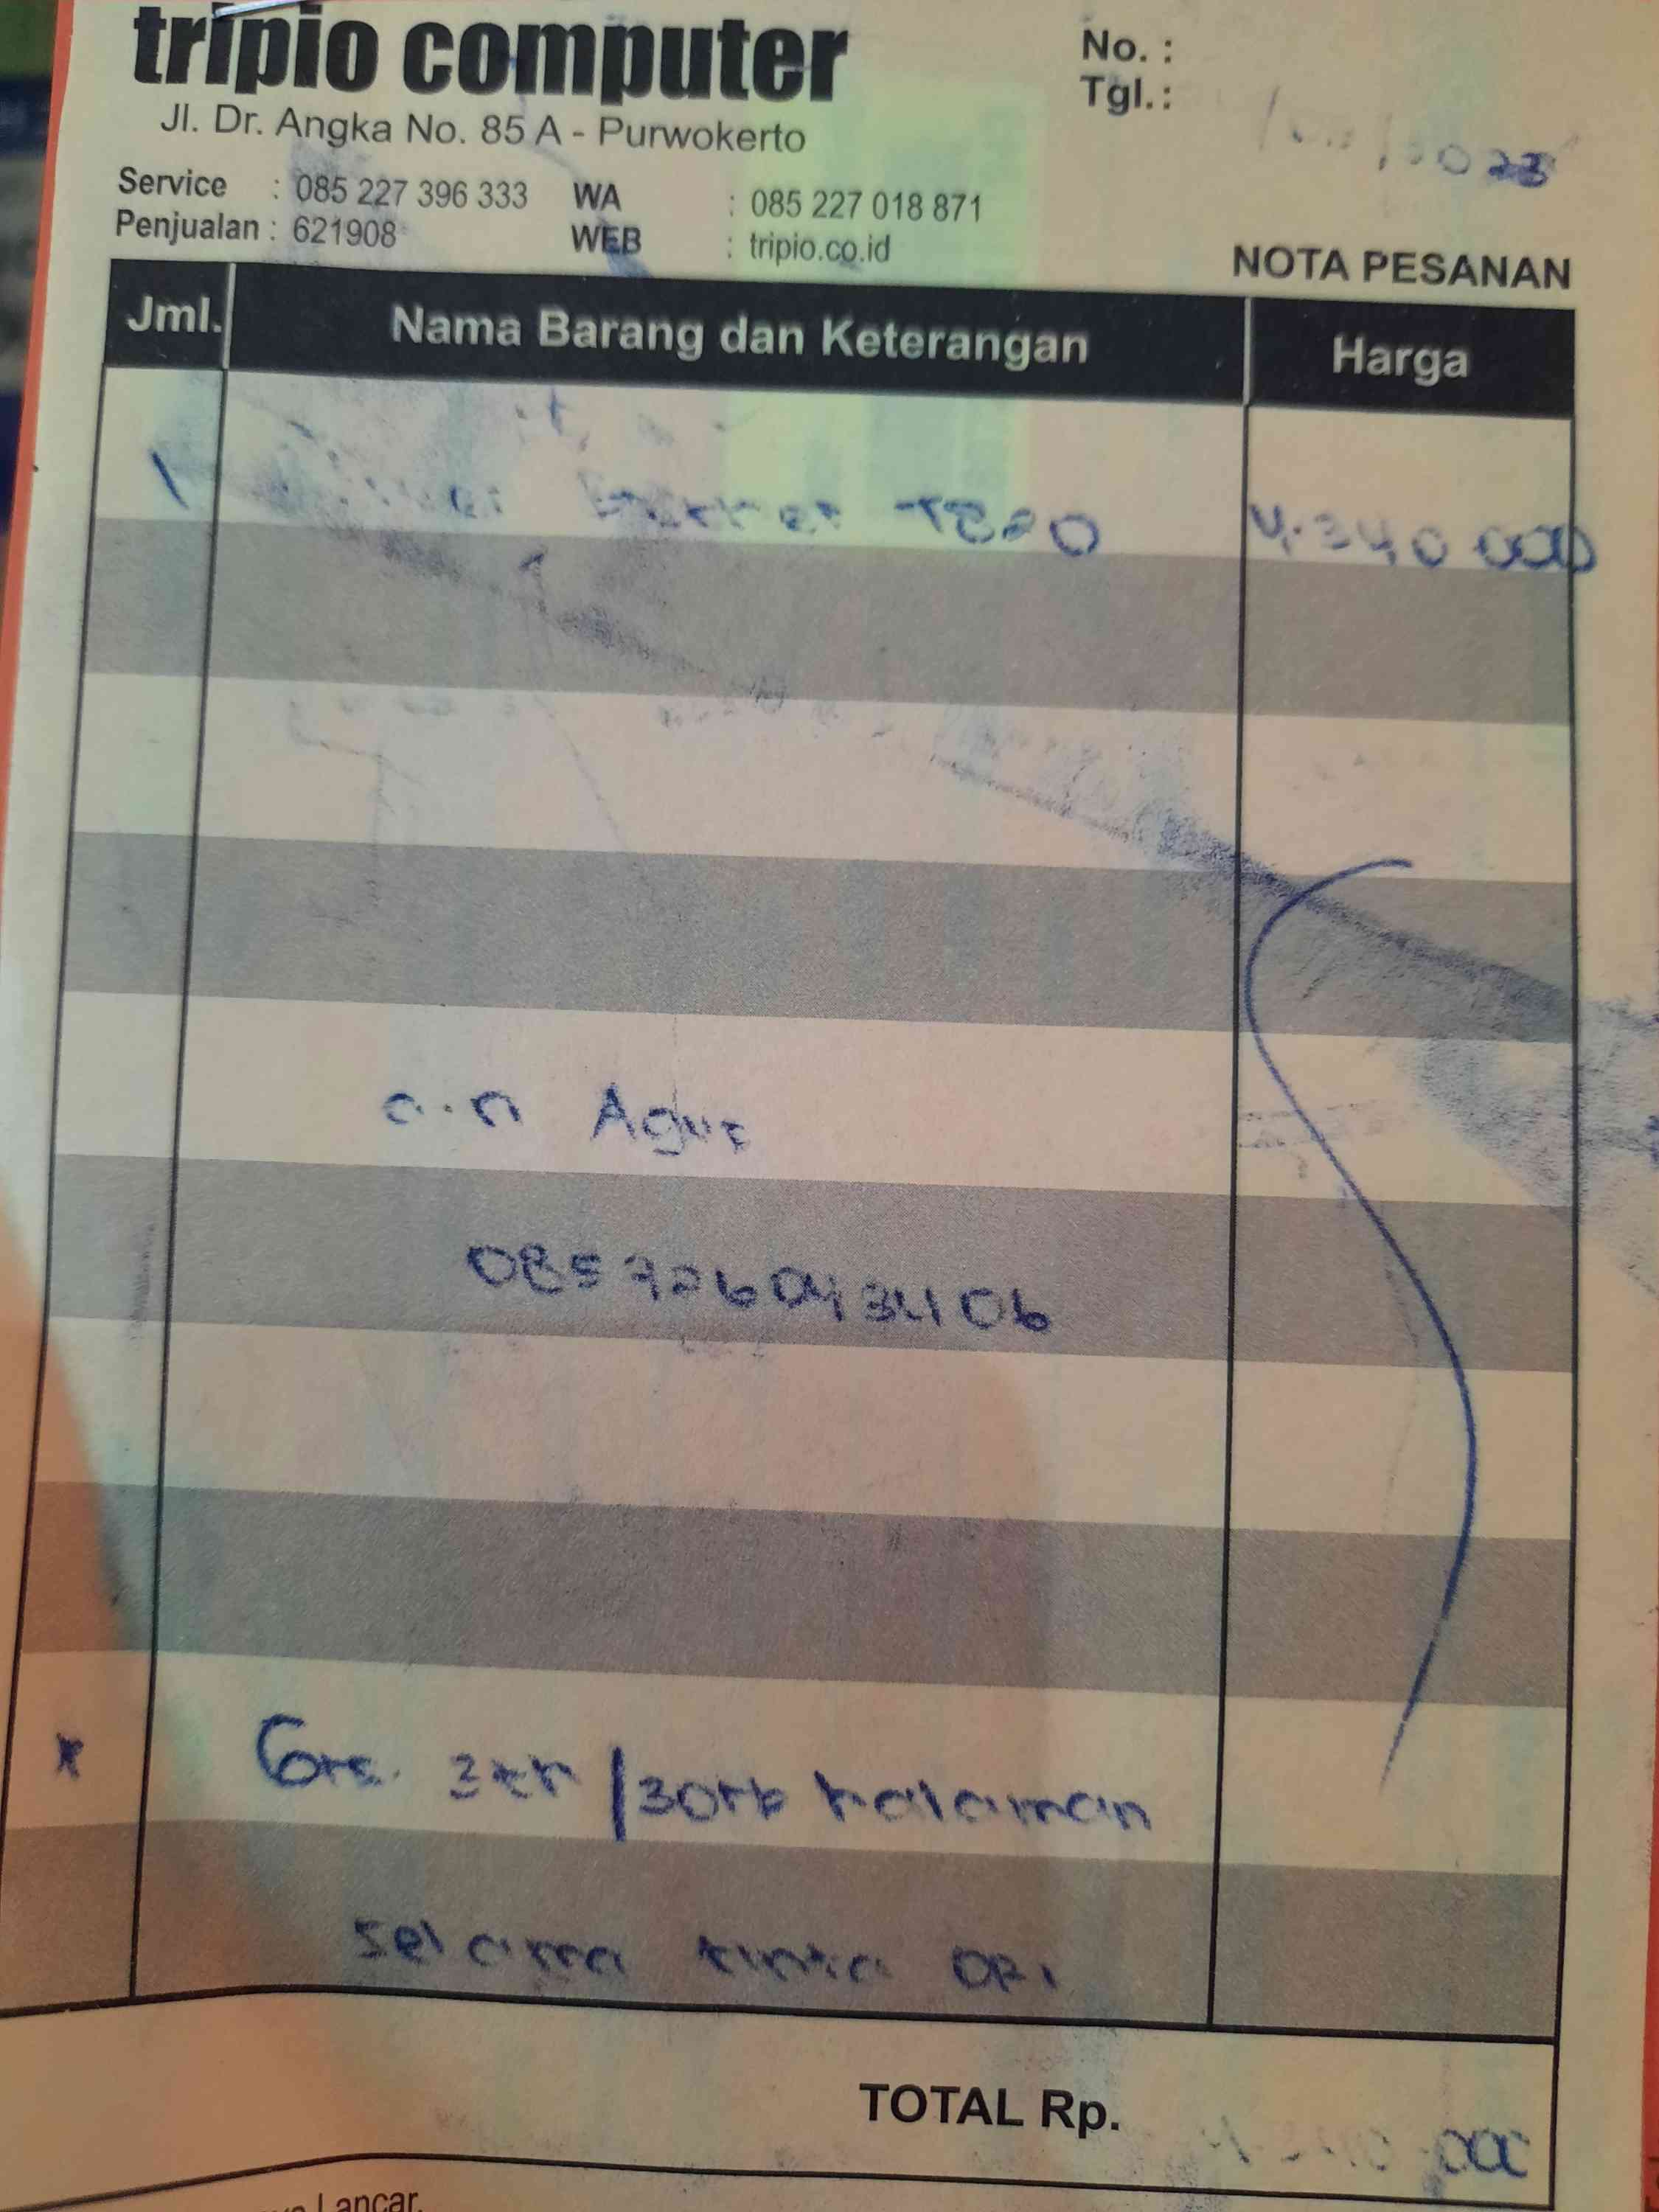 tripio computer
No. :
Tgl.:
Jl. Dr. Angka No. 85 A - Purwokerto
Service : 085 227 396 333 WA : 085 227 018 871
Penjualan : 621908 WEB : tripio.co.id
NOTA PESANAN
Jml. Nama Barang dan Keterangan Harga
1 4.340 000
a.n Agus
085726043406
x Grs. 3th /30rb halaman
selama tinta ori
TOTAL Rp.
Lancar.